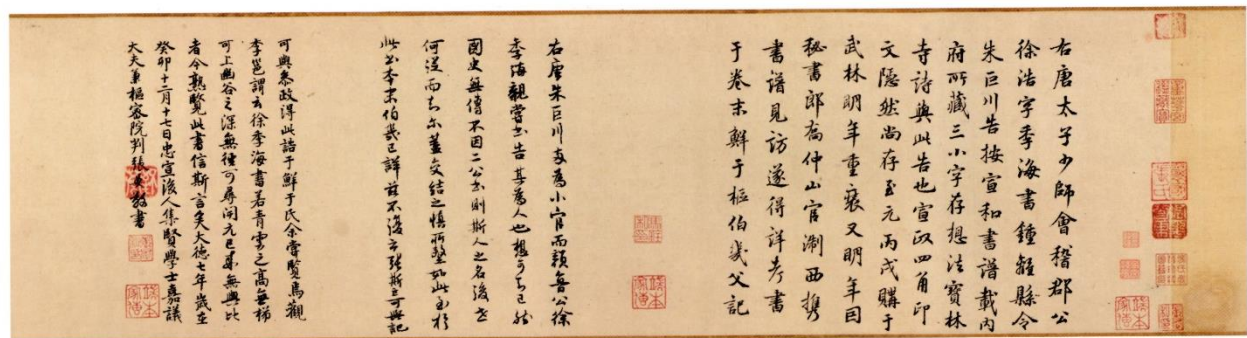 右唐太子少師會稽郡公
徐浩字季海書鍾離縣令
朱巨川告按宣和書譜載內
府所藏三小字存想法寶林
寺詩與此告也宣政四角印
文隱然尚存至元丙戌購于
武林明年重裝又明年同
秘書郎喬仲山官淛西携
書譜見訪遂得詳考書
于卷末鮮于樞伯幾父記
右唐朱巨川両為小官而顏魯公徐
季海親嘗書告其為人也想可知已然
國史無傳不因二公書則斯人之名後世
何從而知尓蓋交結之慎所墍如此至於
此書本末伯幾已詳茲不復云張斯立可與記
可與叅政得此誥于鮮于氏余嘗覽焉觀
李邕謂云徐季海書若青雲之高無梯
可上幽谷之深無徑可尋開元已來無與比
者今熟覽此書信斯言矣大德七年歲在
癸卯十二月十七日忠宣後人集賢學士嘉議
大夫兼樞密院判張 書